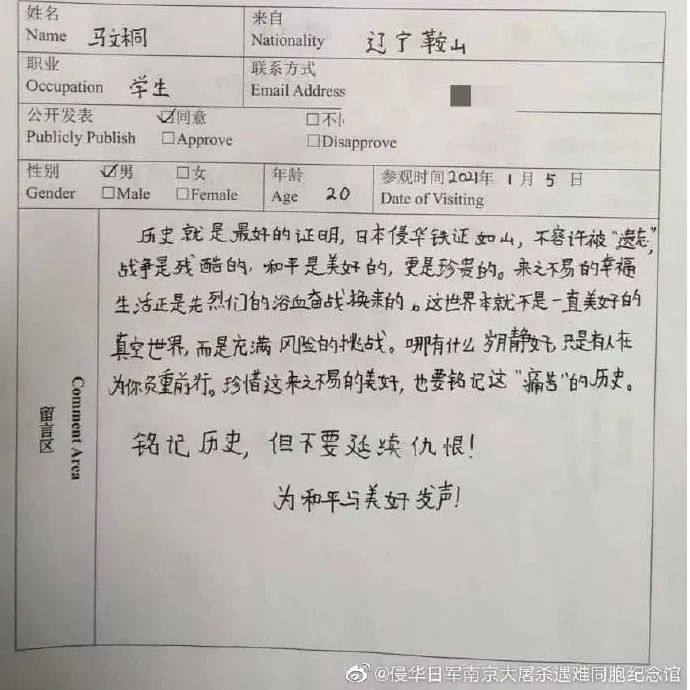 姓名
Name 马文桐
来自
Nationality 辽宁鞍山
职业
Occupation 学生
联系方式
Email Address
公开发表 ☑同意 □不
Publicly Publish □Approve □Disapprove
性别 ☑男 □女
Gender □Male □Female
年龄
Age 20
参观时间2021年 1月 5日
Date of Visiting
留言区
Comment Area
历史就是最好的证明,日本侵华铁证如山,不容许被“遗忘”,
战争是残酷的,和平是美好的,更是珍贵的。来之不易的幸福
生活正是先烈们的浴血奋战换来的。这世界本就不是一直美好的
真空世界,而是充满风险的挑战。哪有什么岁月静好,只是有人在
为你负重前行。珍惜这来之不易的美好,也要铭记这“痛苦”的历史。
铭记历史,但不要延续仇恨!
为和平与美好发声!
@侵华日军南京大屠杀遇难同胞纪念馆